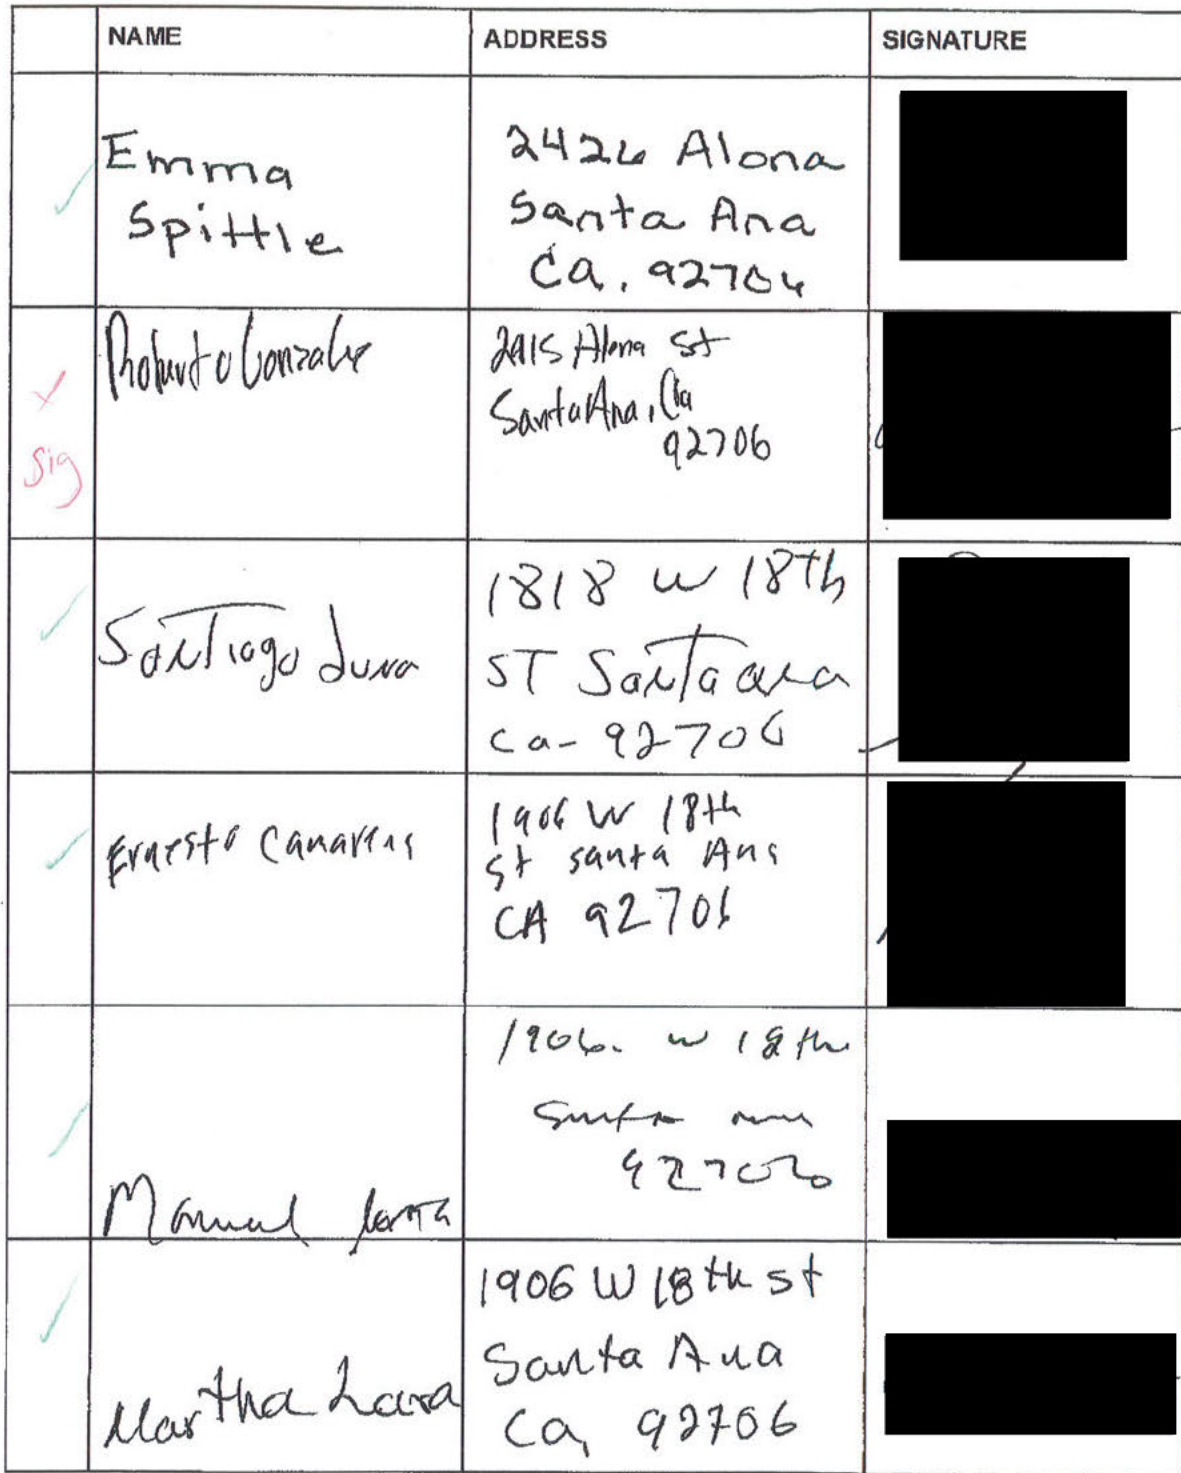 NAME ADDRESS SIGNATURE
Emma
Spittle
2426 Alona
Santa Ana
Ca. 92706
Roberto Gonzalez
2415 Alona St
Santa Ana, Ca
92706
x
Sig
Santiago Luna
1818 W 18th
ST Santa ana
Ca- 92706
Ernesto
1906 W 18th
st santa Ana
CA 92706
Manuel
1906. W 18th
Santa ana
92706
Martha Lara
1906 W 18th st
Santa Ana
Ca, 92706